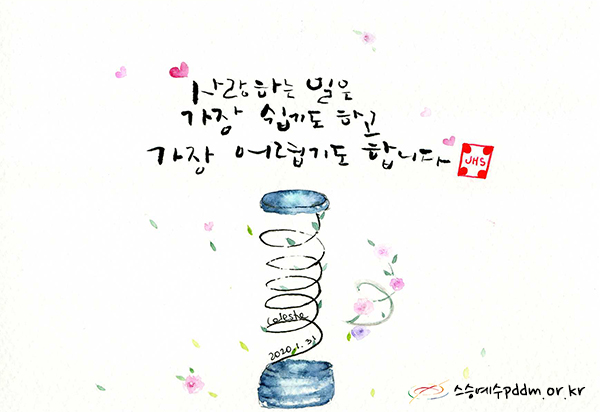 사랑하는 일은
가장 쉽기도 하고
가장 어렵기도 합니다
JHS
Celeste
2020.1.31
스승예수pddm.or.kr